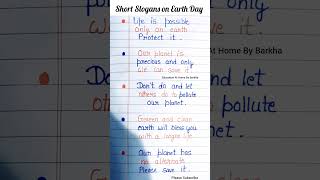 Short Slogans on Earth Day
Life is possible
only on earth
Protect it.
Our planet is
precious and only
we can save it.
Education At Home By Barkha
Don't do and let
others do to pollute
our planet.
Green and clean
earth will bless you
with a longer life.
Our planet has
no alternate
Please save it.
Please Subscribe
At Home By Barkha
and let
to pollute